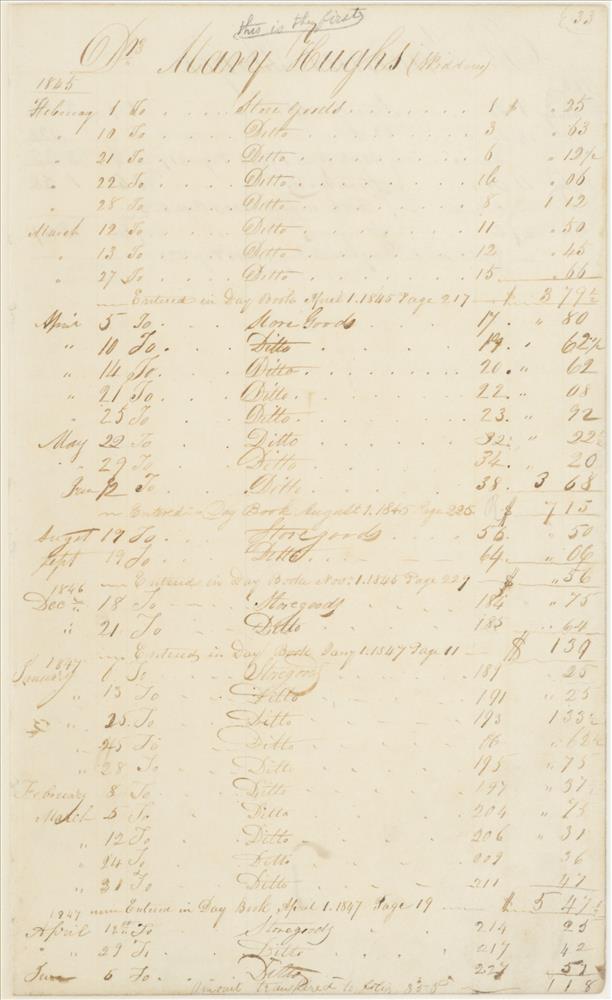 this is the first
33
Drs Mary Hughs (Widdow)
1845
February 1 To Store goods 1 $ .25
" 10 To Ditto 3 . 63
" 21 To Ditto 6 " 12 1/2
" 22 To Ditto 16 " 06
" 28 To Ditto 8 1 12
March 12 To Ditto 11 . 50
" 13 To Ditto 12 . 45
" 27 To Ditto 15 . 66
Entered in Day Book April 1. 1845 Page 217 $ 3 79 1/2
April 5 To Store Goods 17. " 80
" 10 To Ditto 19. " 62 1/2
" 14 To Ditto 20. " 62
" 21 To Ditto 22. " 08
" 25 To Ditto 23. " 92
May 22 To Ditto 32. " 22 1/2
" 29 To Ditto 34. " 20
June 12 To Ditto 38. 3 68
Entered in Day Book August 1. 1845 Page 225 $ 7 15
August 19 To Store goods 56. " 50
Sept 19 To Ditto 64. " 06
Entered in Day Book Nov. 1. 1845 Page 229 $ " 56
1846
Dec 18 To Storegoods 184 " 75
" 21 To Ditto 185 " 64
Entered in Day Book Jany 1. 1847 Page 11 $ 1 39
1847
January 1 To Storegoods 189 " 25
" 13 To Ditto 191 " 25
" 25 To Ditto 193 1 33 1/2
" 25 To Ditto " 62 1/2
" 28 To Ditto 195 " 75
February 8 To Ditto 197 " 37
March 5 To Ditto 204 " 75
" 12 To Ditto 206 " 31
" 24 To Ditto 209 36
" 31 To Ditto 211 47
1847 Entered in Day Book April 1. 1847 Page 19 $ 5 47 1/2
April 12th To Storegoods 214 25
" 29 To Ditto 217 42
June 6 To Ditto 227 51
Amount transfered to folio 1 18